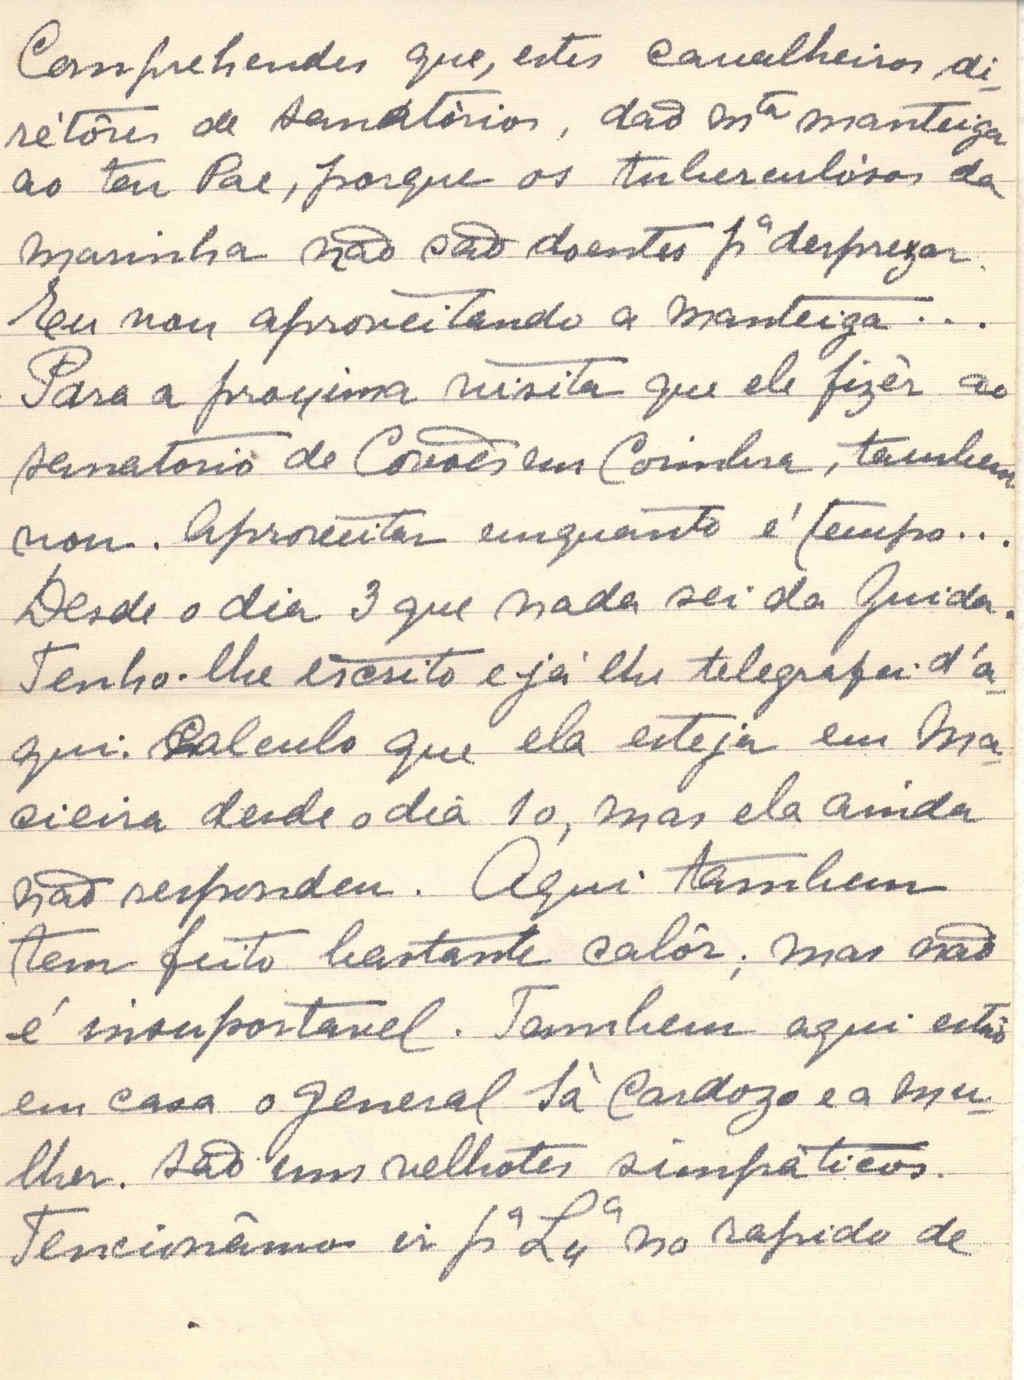 Comprehendes que, estes cavalheiros di-
rétôres de sanatòrios, dão mta manteiga
ao teu Pae, porque os tuberculósos da
marinha não são doentes pa desprezar.
Eu vou aproveitando a manteiga...
Para a proxima visita que ele fizêr ao
sanatorio de Covões em Coimbra, tambem
vou. Aproveitar emquanto é tempo...
Desde o dia 3 que nada sei da Guida.
Tenho-lhe escrito e já lhe telegrafei d'a-
qui. Calculo que ela esteja em Ma-
cieira desde o dia 10, mas ela ainda
não respondeu. Aqui tambem
tem feito bastante calôr, mas não
é insuportavel. Tambem aqui estão
em casa o general Sá Cardozo e a mu-
lher. São uns velhotes simpáticos.
Tencionâmos ir pa Lxa no rapido de